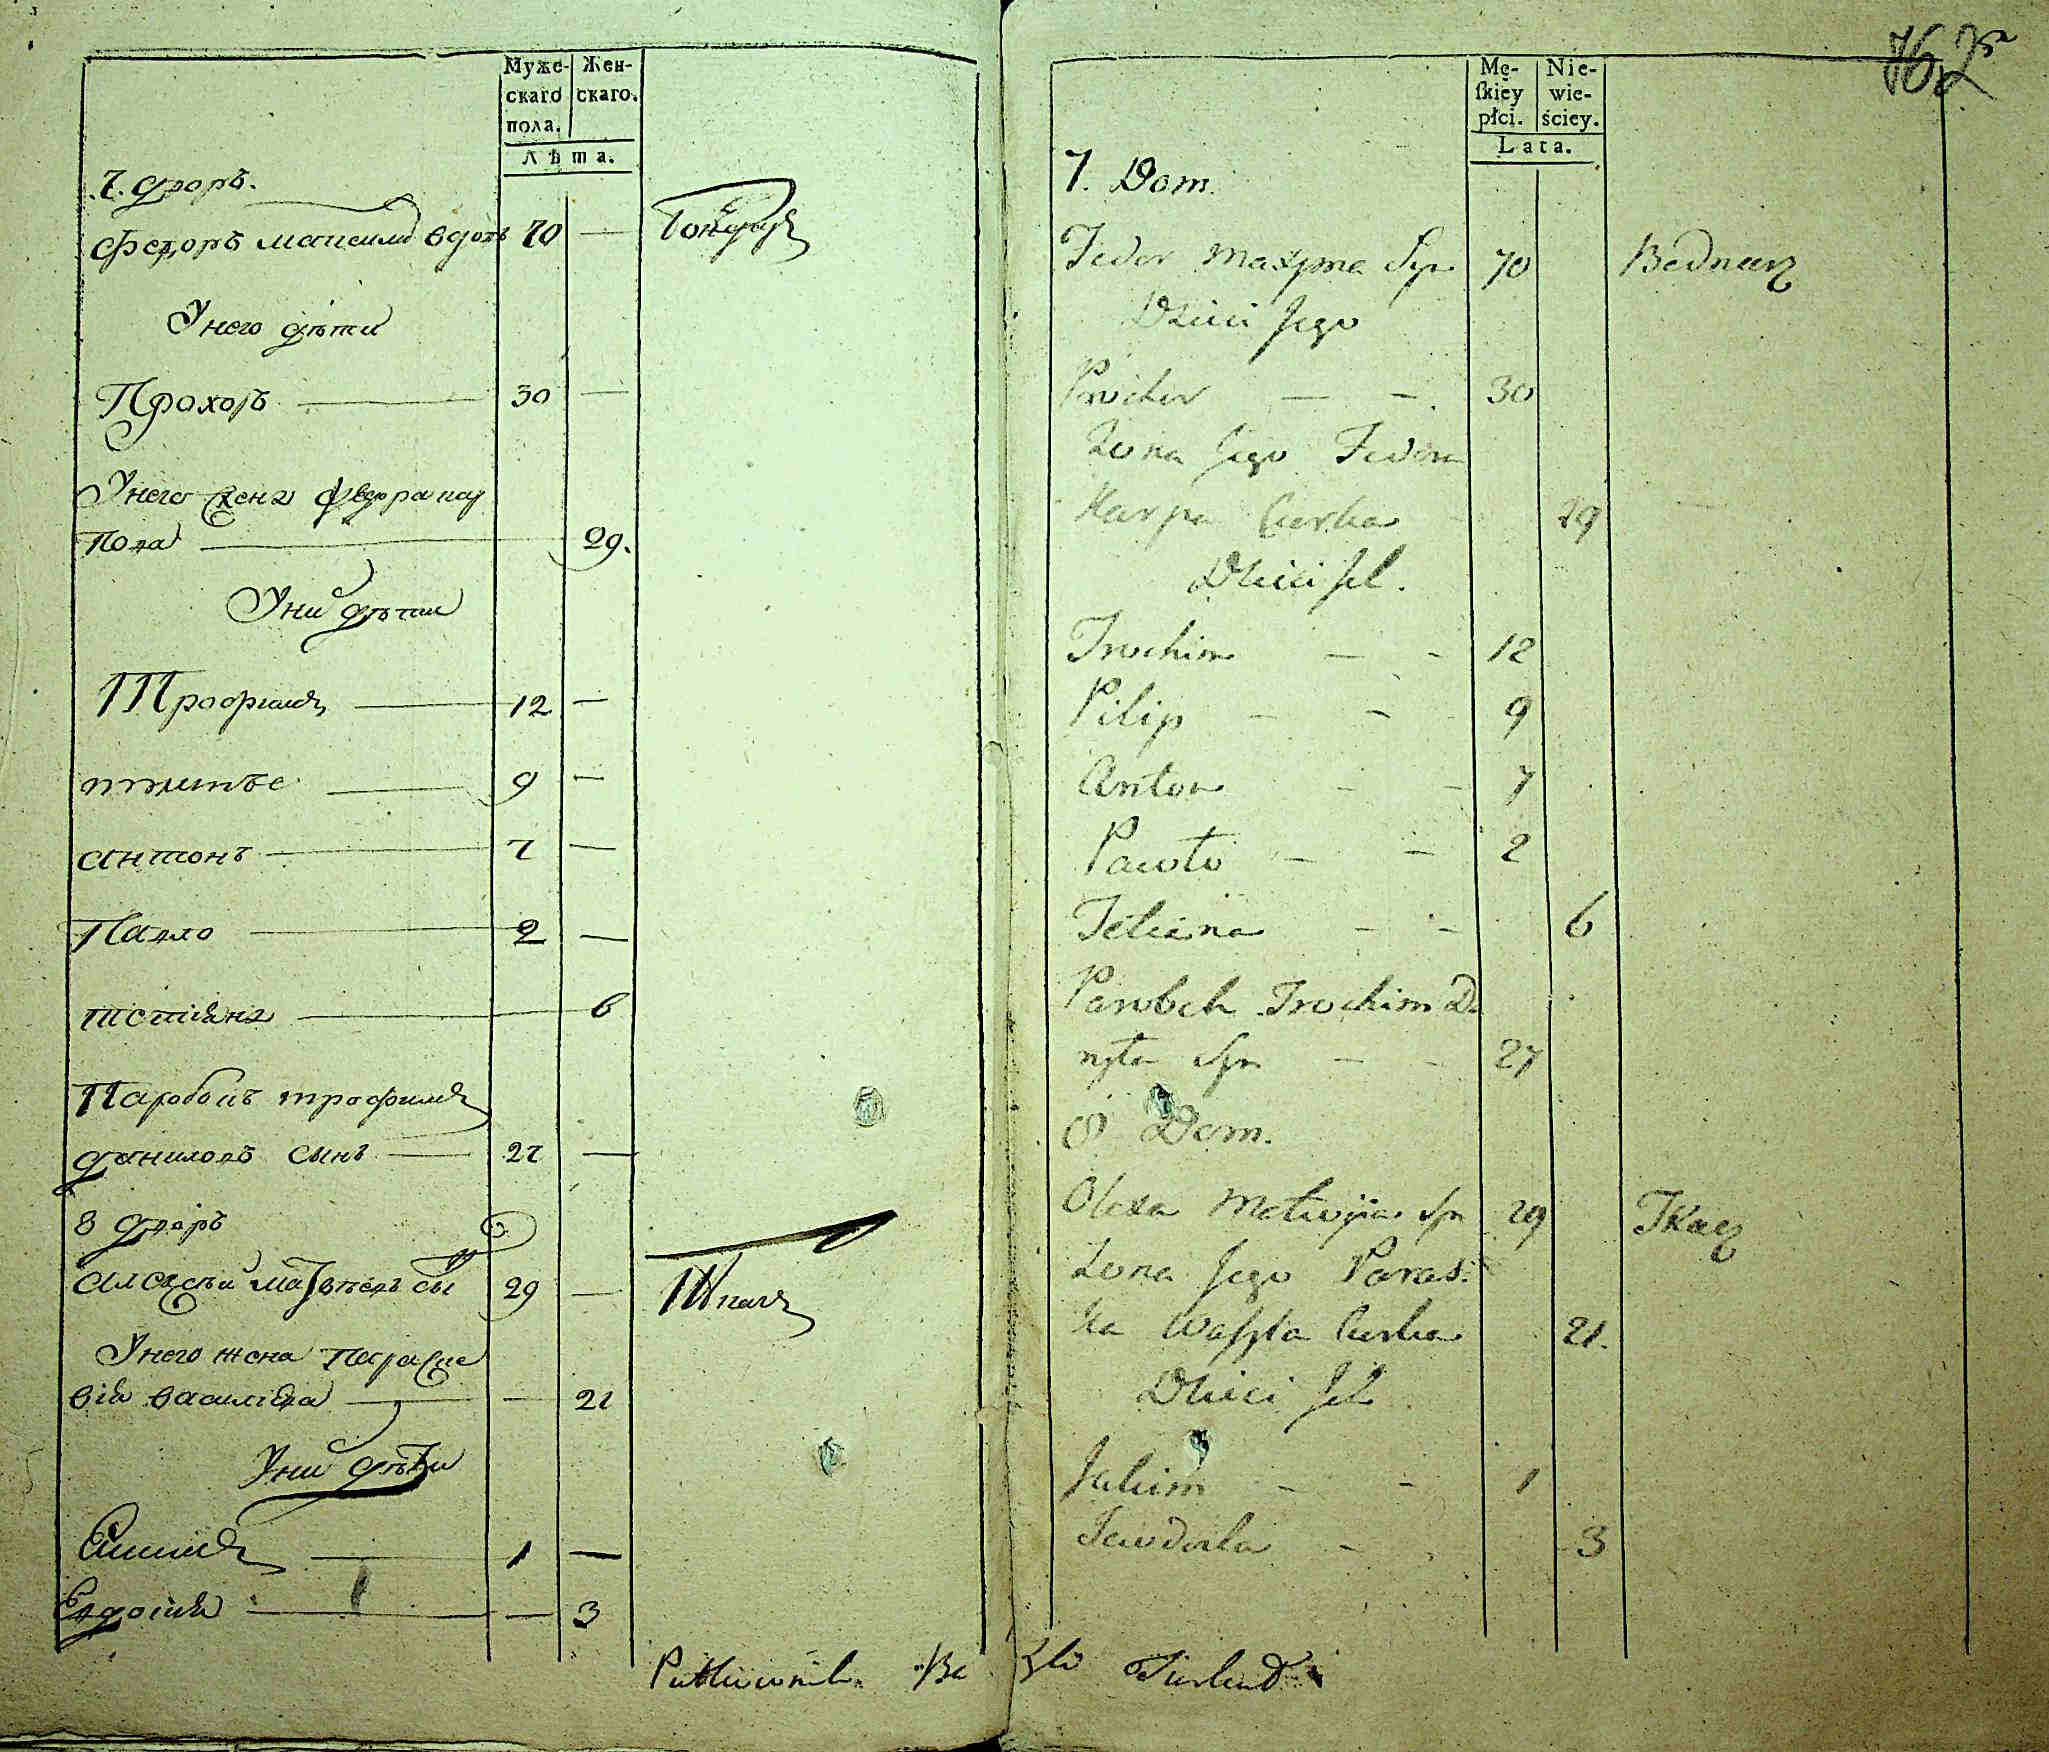 Муже-
скаго
пола.
Жен-
скаго.
Лѣта.
7. дворъ.
Федоръ максимо вдовъ 70 — Бондарь
У него дѣти
Прохоръ — 30 —
У него жена федора кар
пова — 29.
У ни дѣти
Трофимъ — 12 —
9 —
антонъ — 7 —
Павло — 2 —
тетіана — 6
Паробокъ трофимъ
даниловъ сынъ — 27 —
8 дворъ
алексѣй матвѣевъ сы 29 — Ткачъ
У него жена Параске
вія василіева — — 21
У ни дѣти
1 —
Евдокія — — 3
162
Mę-
skiey
płci.
Nie-
wie-
ściey.
Lata.
7. Dom.
Fedor Maxyma Syn 70 Bednarz
Dzieci Jego
Prochor — — 30
Zona Jego Fedora
Karpa Curka 29
Dzieci Jch.
Trochim — — 12
Pilip — — 9
Anton — — 7
Pawło — — 2
Teticina — — 6
Parobek Trochim Da
nyła Syn — — 27
8 Dom.
Olexa Matwija Syn 29 Tkacz
Zona Jego Paras:
ka Wasyla Curka 21.
Dzieci Jch
Jakim — — 1
Jewdoka — 3